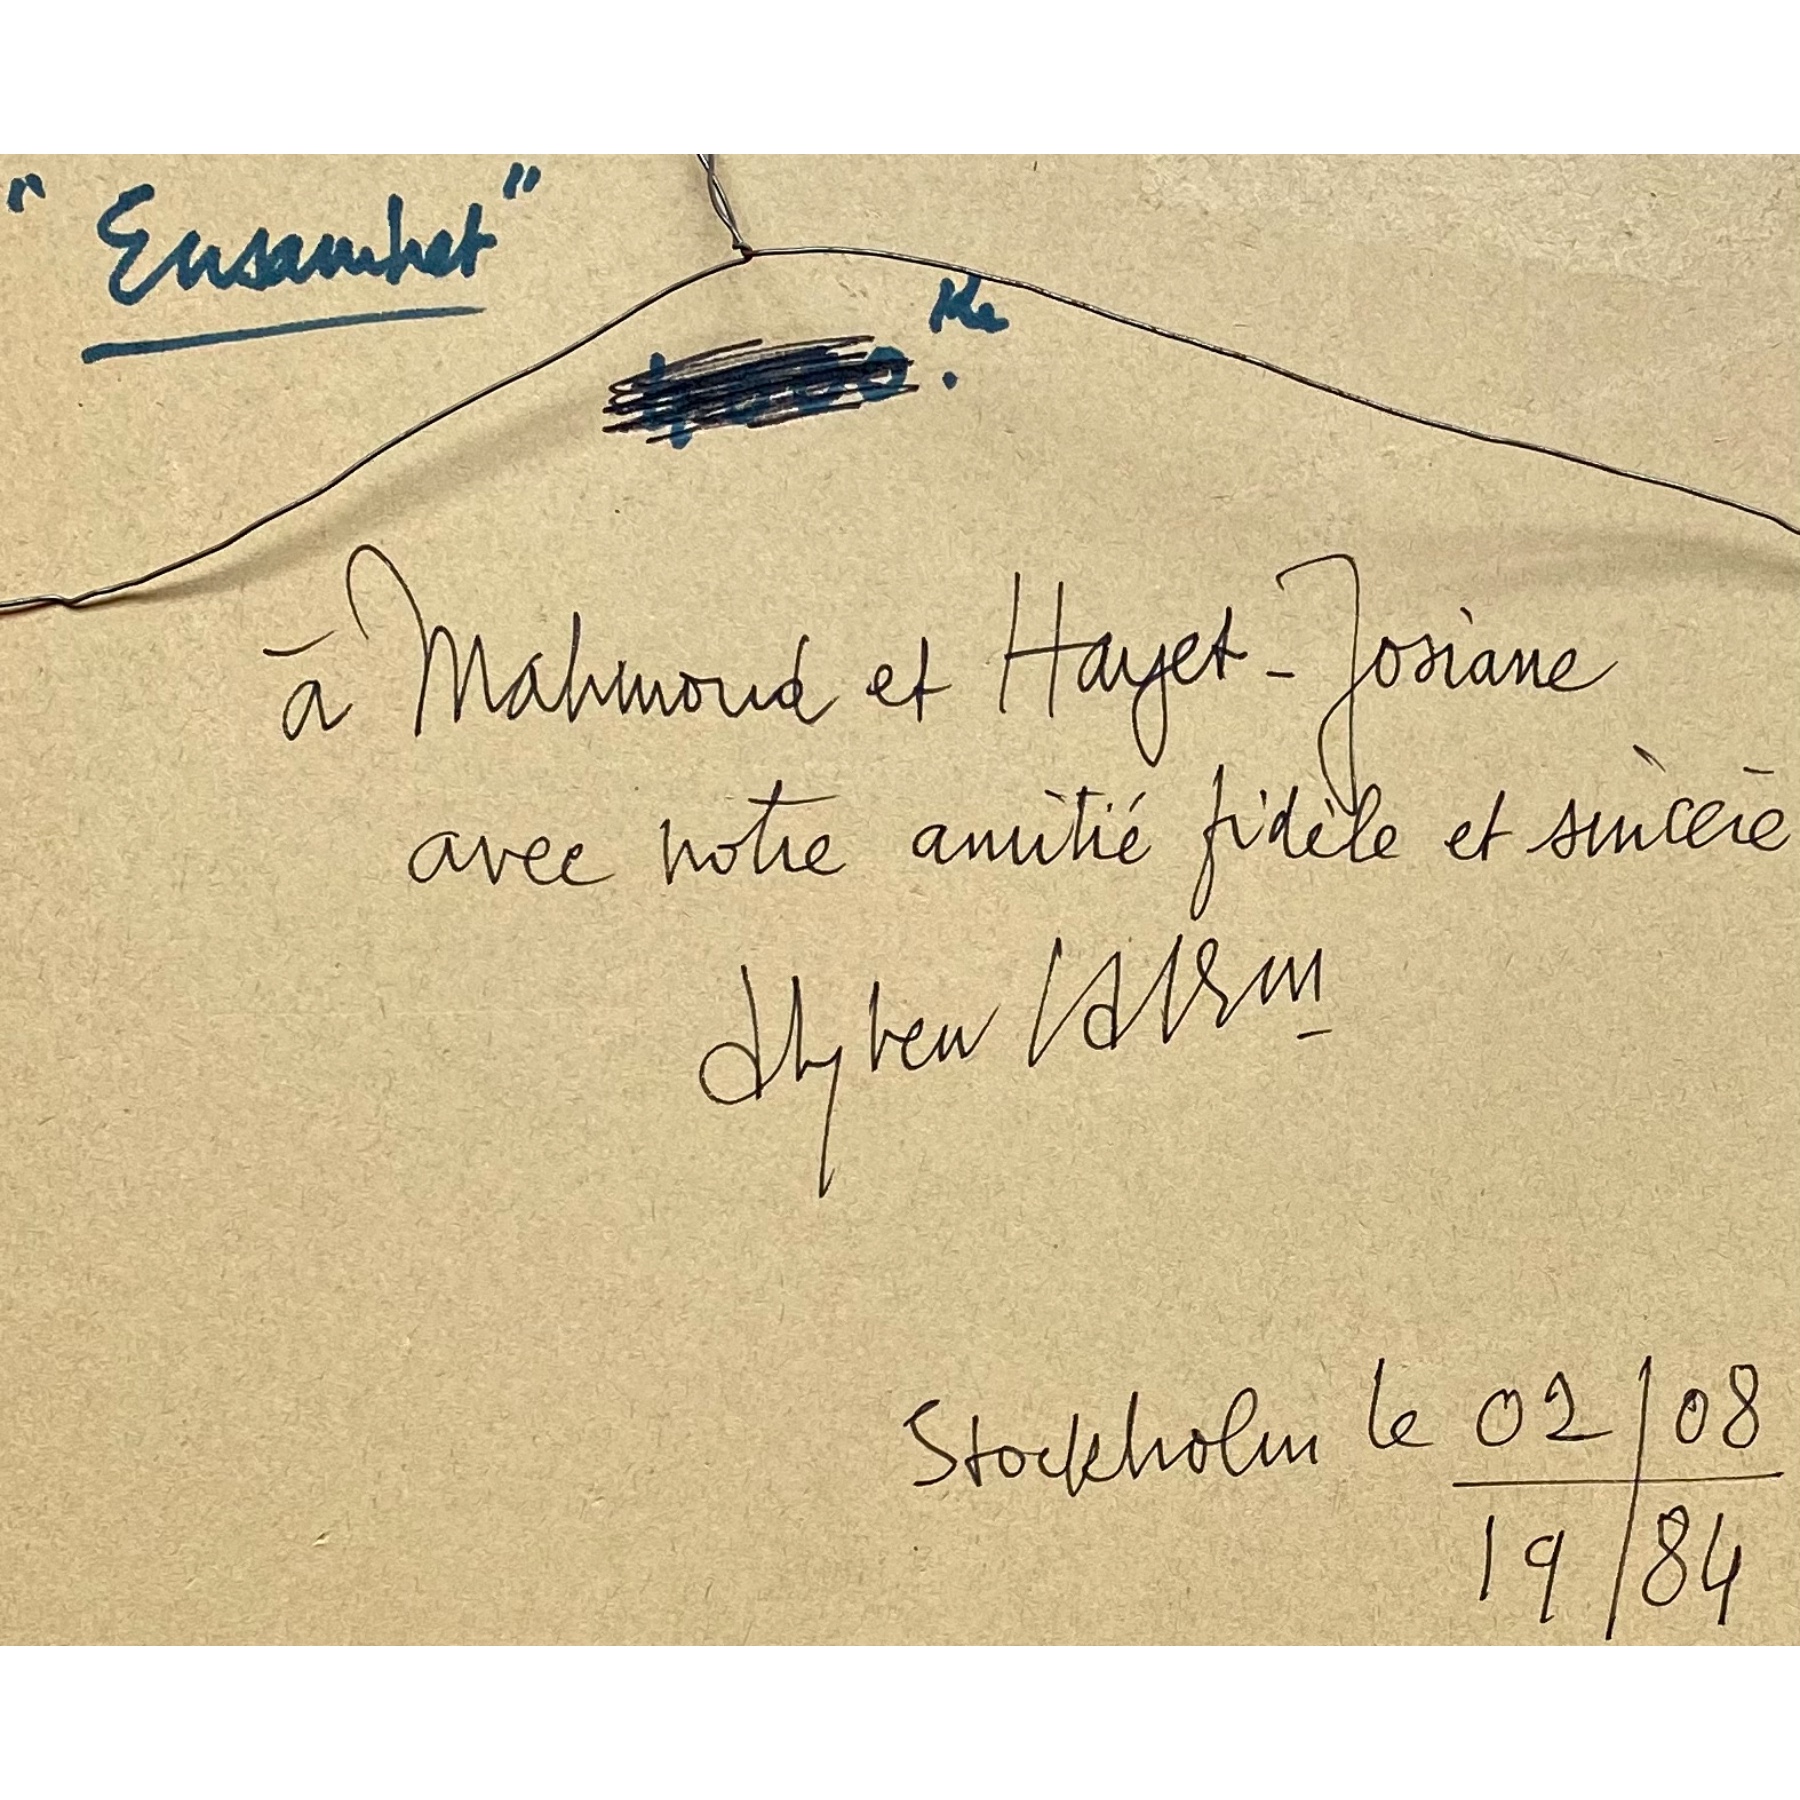 "Ensamhet"
Kr
à Mahmoud et Hayet-Josiane
avec notre amitié fidèle et sincère
Stockholm le 02/08
19/84